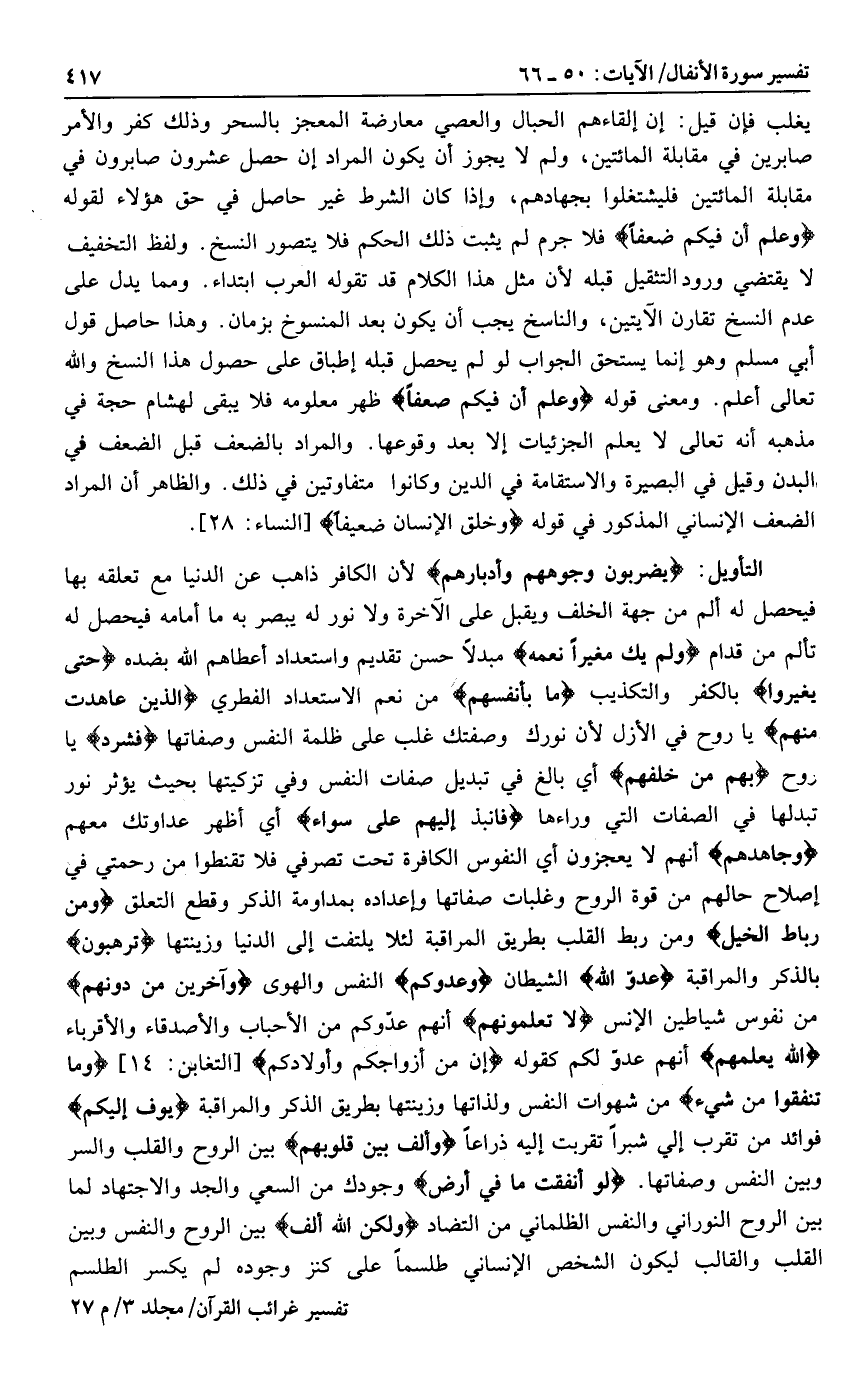 تفسير سورة الأنفال/ الآيات: ٥٠ ـ ٦٦ ٤١٧
يغلب فإن قيل: إن إلقاءهم الحبال والعصي معارضة المعجز بالسحر وذلك كفر والأمر
صابرين في مقابلة المائتين، ولم لا يجوز أن يكون المراد إن حصل عشرون صابرون في
مقابلة المائتين فليشتغلوا بجهادهم، وإذا كان الشرط غير حاصل في حق هؤلاء لقوله
﴿وعلم أن فيكم ضعفاً﴾ فلا جرم لم يثبت ذلك الحكم فلا يتصور النسخ. ولفظ التخفيف
لا يقتضي ورود التثقيل قبله لأن مثل هذا الكلام قد تقوله العرب ابتداء. ومما يدل على
عدم النسخ تقارن الآيتين، والناسخ يجب أن يكون بعد المنسوخ بزمان. وهذا حاصل قول
أبي مسلم وهو إنما يستحق الجواب لو لم يحصل قبله إطباق على حصول هذا النسخ والله
تعالى أعلم. ومعنى قوله ﴿وعلم أن فيكم صعفاً﴾ ظهر معلومه فلا يبقى لهشام حجة في
مذهبه أنه تعالى لا يعلم الجزئيات إلا بعد وقوعها. والمراد بالضعف قبل الضعف في
البدن وقيل في البصيرة والاستقامة في الدين وكانوا متفاوتين في ذلك. والظاهر أن المراد
الضعف الإنساني المذكور في قوله ﴿وخلق الإنسان ضعيفاً﴾ [النساء: ٢٨].
التأويل: ﴿يضربون وجوههم وأدبارهم﴾ لأن الكافر ذاهب عن الدنيا مع تعلقه بها
فيحصل له ألم من جهة الخلف ويقبل على الآخرة ولا نور له يبصر به ما أمامه فيحصل له
تألم من قدام ﴿ولم يك مغيراً نعمه﴾ مبدلاً حسن تقديم واستعداد أعطاهم الله بضده ﴿حتى
يغيروا﴾ بالكفر والتكذيب ﴿ما بأنفسهم﴾ من نعم الاستعداد الفطري ﴿الذين عاهدت
منهم﴾ يا روح في الأزل لأن نورك وصفتك غلب على ظلمة النفس وصفاتها ﴿فشرد﴾ يا
روح ﴿بهم من خلفهم﴾ أي بالغ في تبديل صفات النفس وفي تزكيتها بحيث يؤثر نور
تبدلها في الصفات التي وراءها ﴿فانبذ إليهم على سواء﴾ أي أظهر عداوتك معهم
﴿وجاهدهم﴾ أنهم لا يعجزون أي النفوس الكافرة تحت تصرفي فلا تقنطوا من رحمتي في
إصلاح حالهم من قوة الروح وغلبات صفاتها وإعداده بمداومة الذكر وقطع التعلق ﴿ومن
رباط الخيل﴾ ومن ربط القلب بطريق المراقبة لئلا يلتفت إلى الدنيا وزينتها ﴿ترهبون﴾
بالذكر والمراقبة ﴿عدوّ الله﴾ الشيطان ﴿وعدوكم﴾ النفس والهوى ﴿وآخرين من دونهم﴾
من نفوس شياطين الإنس ﴿لا تعلمونهم﴾ أنهم عدّوكم من الأحباب والأصدقاء والأقرباء
﴿الله يعلمهم﴾ أنهم عدوّ لكم كقوله ﴿إن من أزواجكم وأولادكم﴾ [التغابن: ١٤] ﴿وما
تنفقوا من شيء﴾ من شهوات النفس ولذاتها وزينتها بطريق الذكر والمراقبة ﴿يوف إليكم﴾
فوائد من تقرب إلي شبراً تقربت إليه ذراعاً ﴿وألف بين قلوبهم﴾ بين الروح والقلب والسر
وبين النفس وصفاتها. ﴿لو أنفقت ما في أرض﴾ وجودك من السعي والجد والاجتهاد لما
بين الروح النوراني والنفس الظلماني من التضاد ﴿ولكن الله ألف﴾ بين الروح والنفس وبين
القلب والقالب ليكون الشخص الإنساني طلسماً على كنز وجوده لم يكسر الطلسم
تفسير غرائب القرآن/ مجلد ٣/ م ٢٧